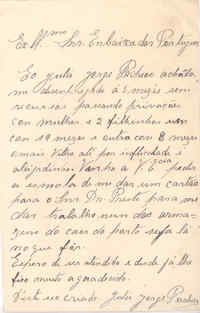 Ex.mo Snr. Embaixador Portugues
Eu Julio Jorge Pacheco achato
me desempregado á 5 mezes sem
recursos pasando privações
com mulher e 2 filhinhos um
com 19 mezes e outro com 8 mezes
o mais Velho até por infelicidade é
aleijadinho. Venho a V. Excia pedir
a esmola de me dar um cartão
para o Snr Dr. Preste para me
dar trabalho num dos arma-
zens do cais do porto seja lá
no que fôr.
Espero de ser atendido e desde já lhe
fico muito agradecido.
Julio Jorge Pacheco